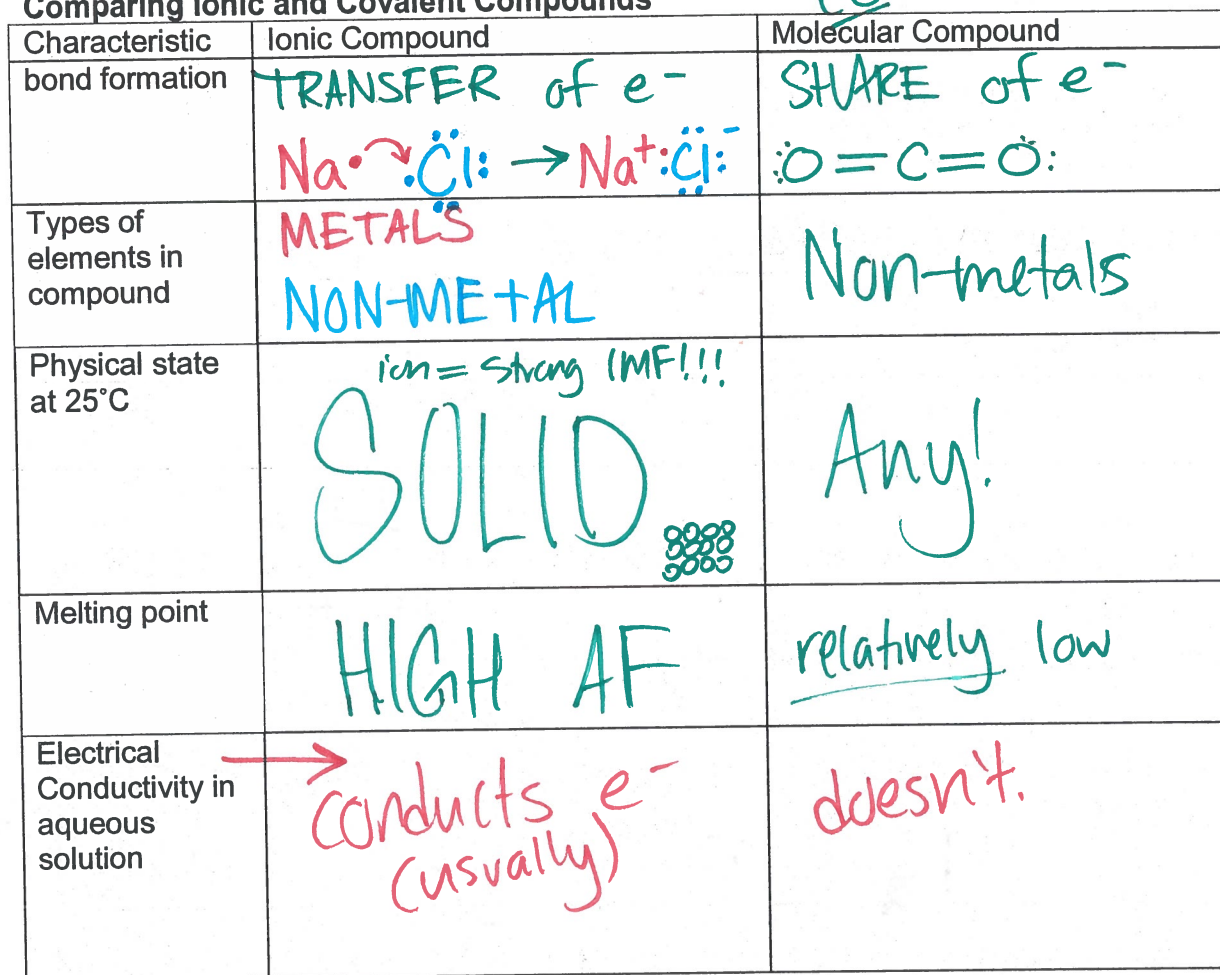 Comparing Ionic and Covalent Compounds
Characteristic
Ionic Compound
Molecular Compound
bond formation
TRANSFER of e⁻
Na• •Cl: → Na⁺ :Cl:⁻
SHARE of e⁻
:O=C=O:
Types of
elements in
compound
METALS
NON-METAL
Non-metals
Physical state
at 25°C
ion = strong IMF!!!
SOLID
Any!
Melting point
HIGH AF
relatively low
Electrical
Conductivity in
aqueous
solution
conducts e⁻
(usually)
doesn't.